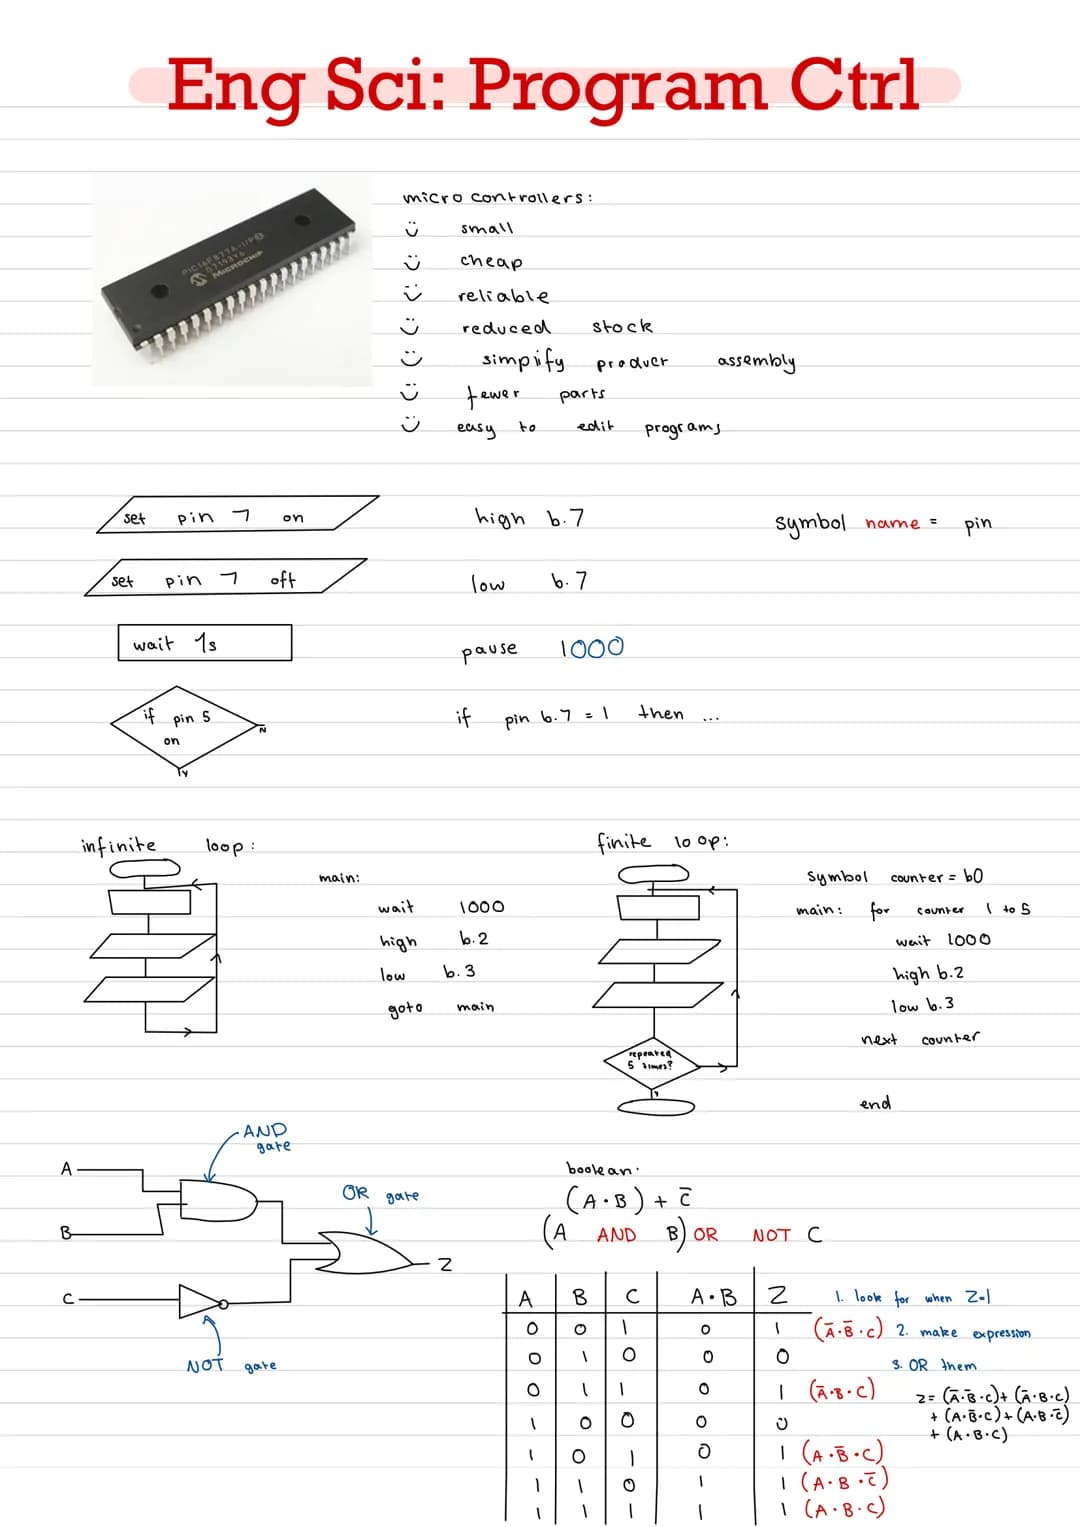 Eng Sci: Program Ctrl
PIC16F877A-I/P
MICROCHIP
micro controllers:
small
cheap
reliable
reduced stock
simpify product assembly
fewer parts
easy to edit programs
set pin 7 on high b.7 symbol name = pin
set pin 7 off low b.7
wait 1s pause 1000
if pin 5 on N Y if pin b.7 = 1 then ...
infinite loop:
main:
wait 1000
high b.2
low b.3
goto main
finite loop:
repeated
5 times?
Y
symbol counter = b0
main: for counter 1 to 5
wait 1000
high b.2
low b.3
next counter
end
AND gate
A
B
OR gate
Z
C
NOT gate
boolean.
(A·B) + C̅
(A AND B) OR NOT C
A B C A·B Z
0 0 1 0 1 (A̅·B̅·C)
0 1 0 0 0
0 1 1 0 1 (A̅·B·C)
1 0 0 0 0
1 0 1 0 1 (A·B̅·C)
1 1 0 1 1 (A·B·C̅)
1 1 1 1 1 (A·B·C)
1. look for when Z=1
2. make expression
3. OR them
Z= (A̅·B̅·C)+(A̅·B·C)
+ (A·B̅·C)+(A·B·C̅)
+ (A·B·C)